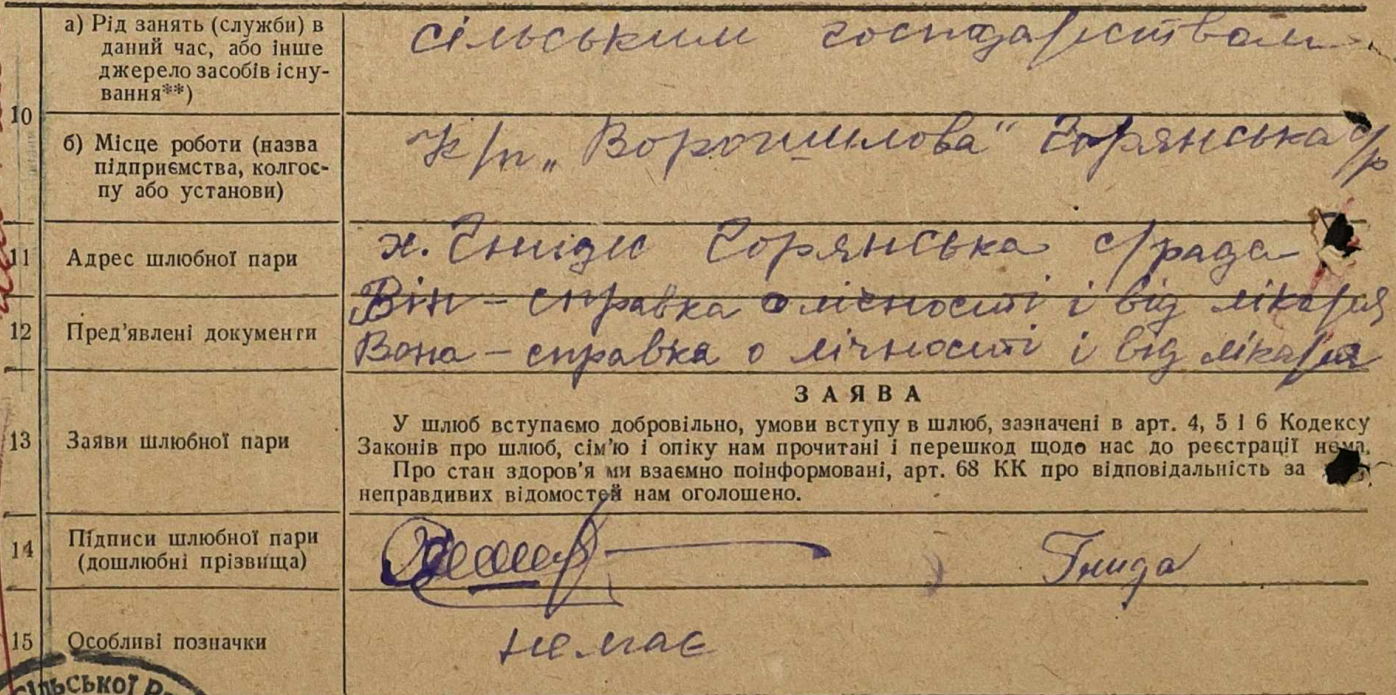 10
а) Рід занять (служби) в
даний час, або інше
джерело засобів існу-
вання**)
сільським господарством
б) Місце роботи (назва
підприємства, колгос-
пу або установи)
к/п „Ворошилова" Горянська с/р
11
Адрес шлюбної пари
х. Гниди Горянська с/рада
12
Пред'явлені документи
Він – справка о лічності і від лікаря
Вона – справка о лічності і від лікаря
13
Заяви шлюбної пари
ЗАЯВА
У шлюб вступаємо добровільно, умови вступу в шлюб, зазначені в арт. 4, 5 і 6 Кодексу
Законів про шлюб, сім'ю і опіку нам прочитані і перешкод щодо нас до реєстрації нема.
Про стан здоров'я ми взаємно поінформовані, арт. 68 КК про відповідальність за
неправдивих відомостей нам оголошено.
14
Підписи шлюбної пари
(дошлюбні прізвища)
Гнида
15
Особливі позначки
немає
ільської Р